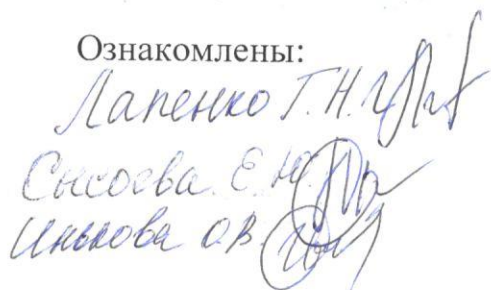 Ознакомлены:
Лапенко Т.Н.
Сысоева Е.Ю.
Инькова О.В.